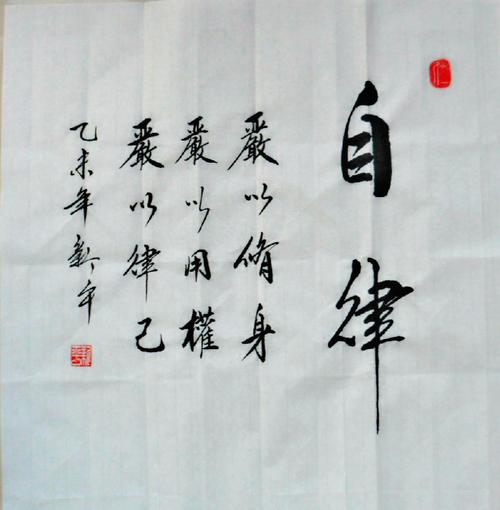 自律
嚴以脩身
嚴以用權
嚴以律己
乙未年新年